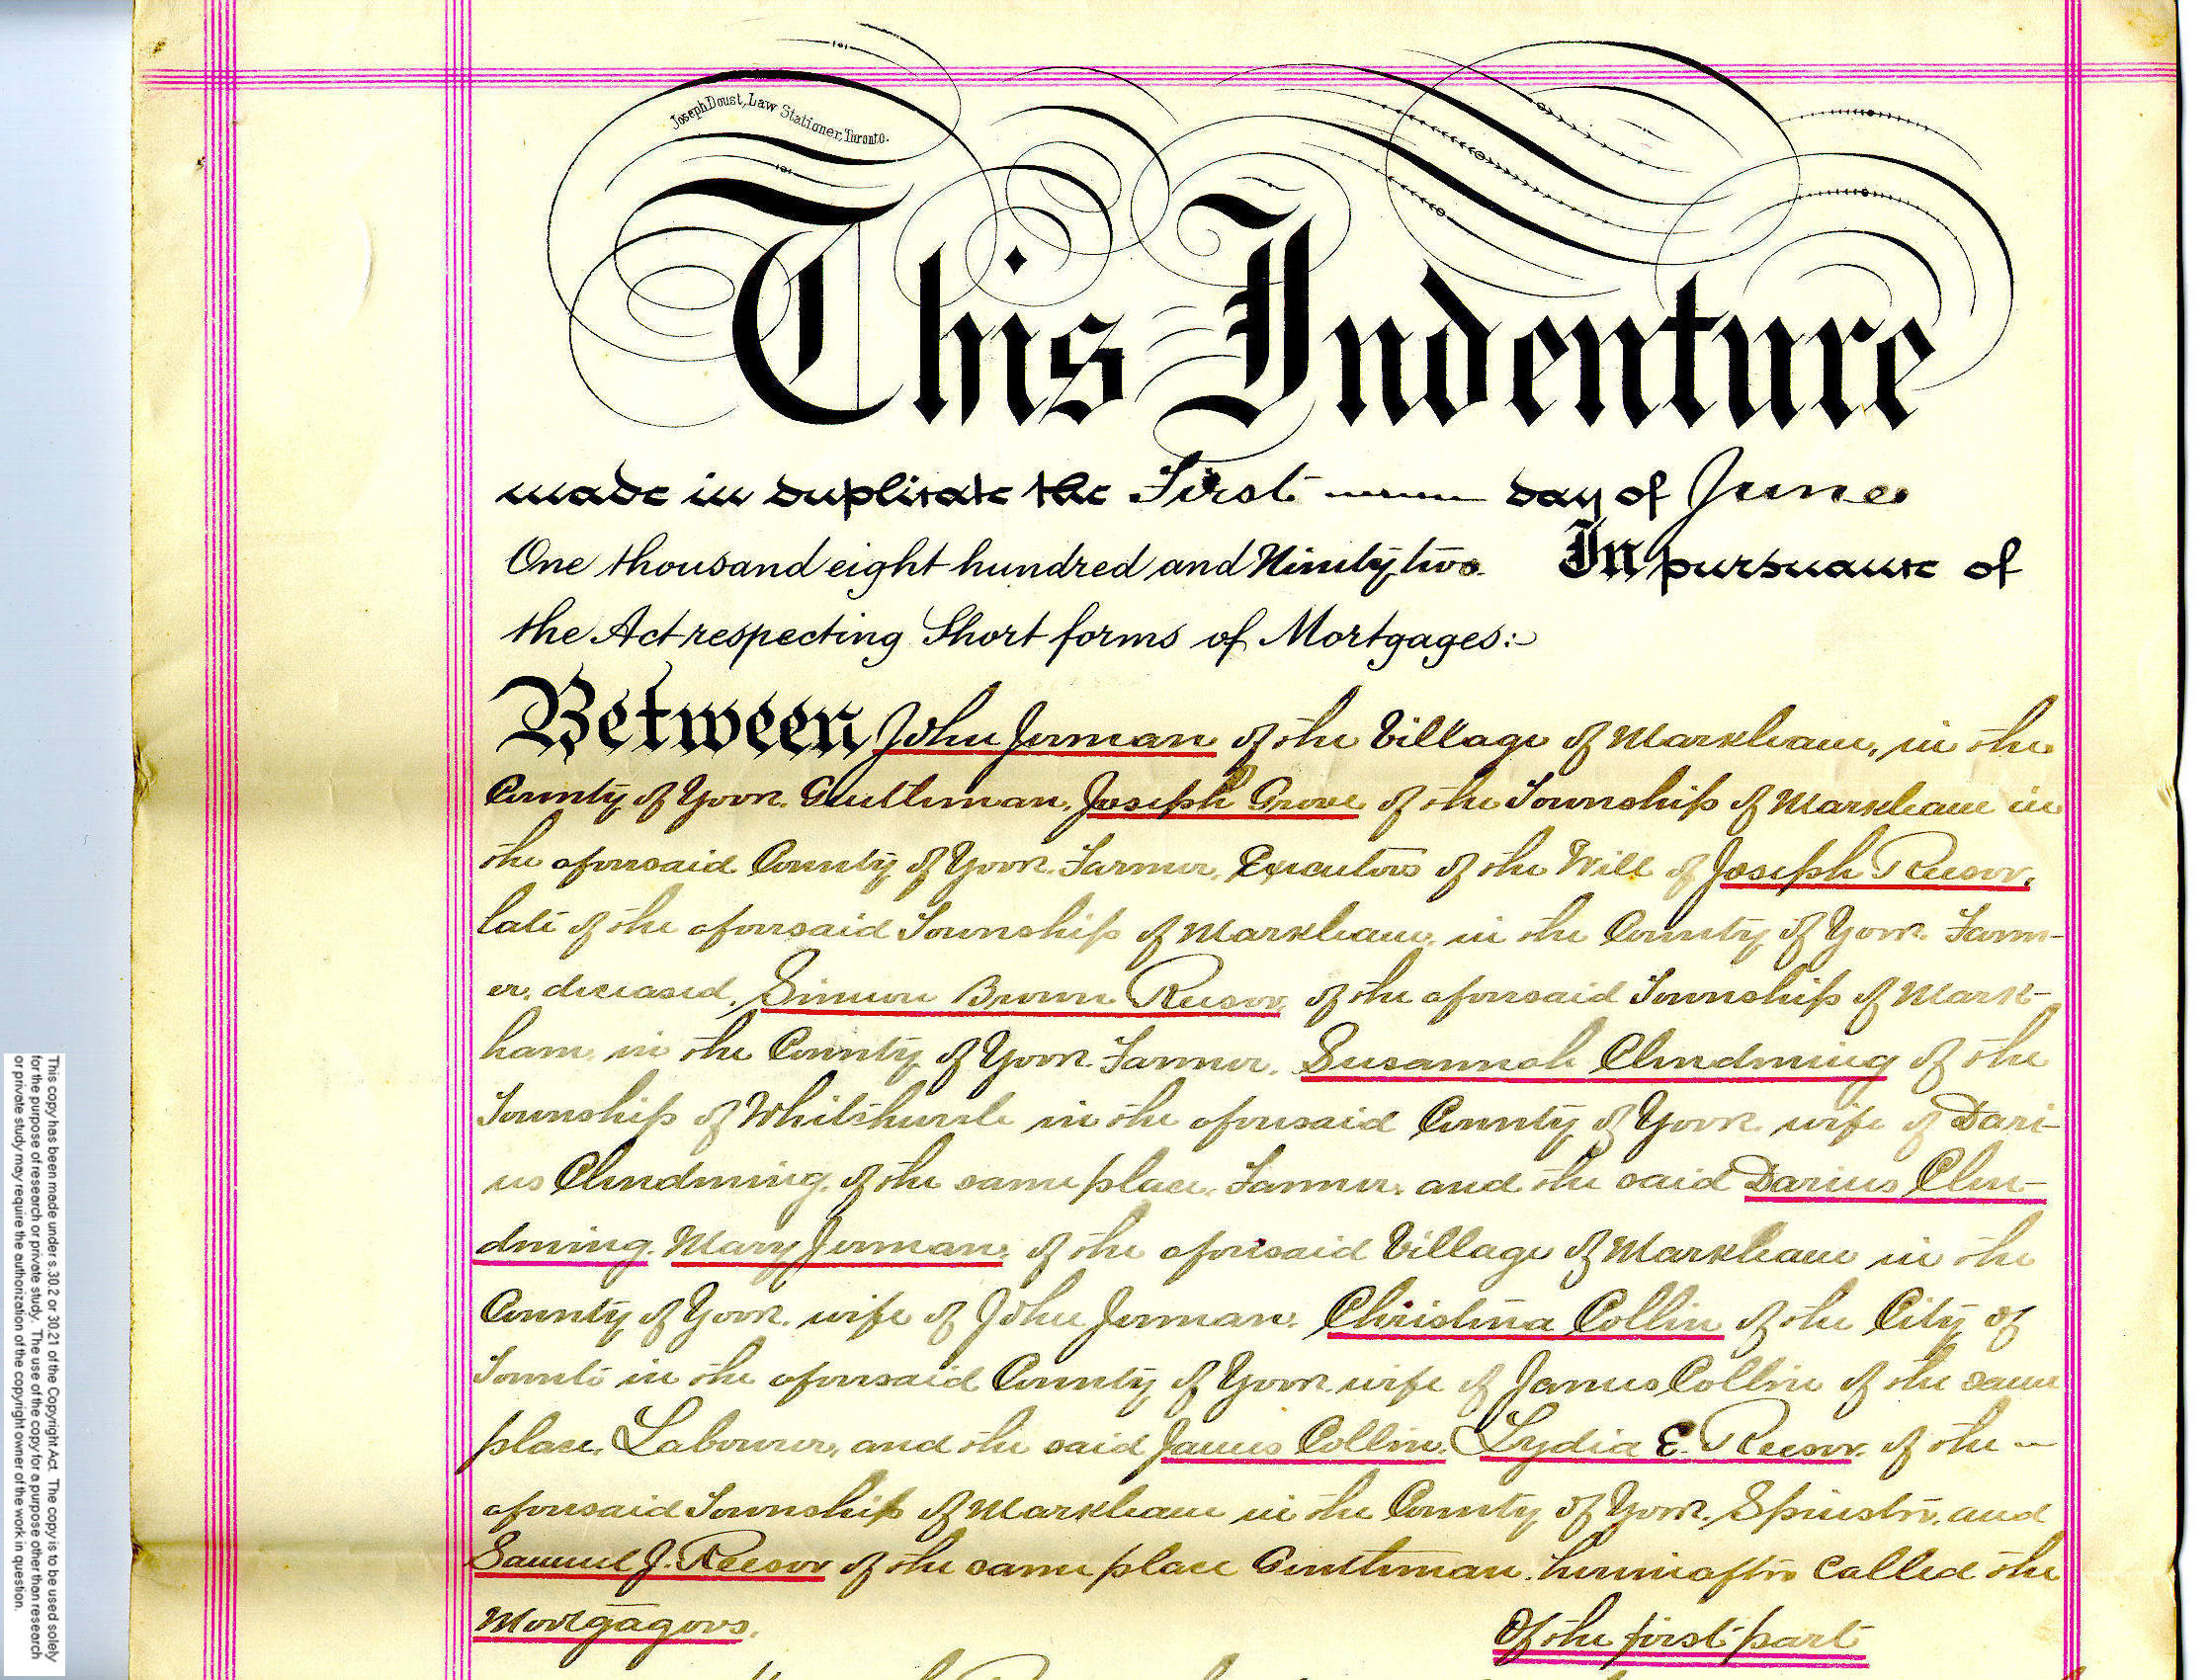 Joseph Doust, Law Stationer, Toronto.
This Indenture
made in duplicate the First day of June
One thousand eight hundred and Ninety two In pursuance of
the Act respecting Short forms of Mortgages:-
Between John Jerman of the Village of Markham, in the
County of York. Gentleman, Joseph Grove of the Township of Markham in
the aforesaid County of York. Farmer, Executors of the Will of Joseph Reesor,
late of the aforesaid Township of Markham, in the County of York. Farm-
er, deceased, Simeon Brown Reesor, of the aforesaid Township of Mark-
ham, in the County of York. Farmer, Susannah Clendening of the
Township of Whitchurch in the aforesaid County of York wife of Dari-
us Clendening, of the same place, Farmer, and the said Darius Clen-
dening. Mary Jerman, of the aforesaid Village of Markham in the
County of York. wife of John Jerman. Christina Collin of the City of
Toronto in the aforesaid County of York wife of James Collin of the same
place, Labourer, and the said James Collin, Lydia E. Reesor. of the -
aforesaid Township of Markham in the County of York. Spinster, and
Samuel J. Reesor of the same place Gentleman. hereinafter called the
Mortgagors. Of the first part
This copy has been made under s.30.2 or 30.21 of the Copyright Act. The copy is to be used solely
for the purpose of research or private study. The use of the copy for a purpose other than research
or private study may require the authorization of the copyright owner of the work in question.